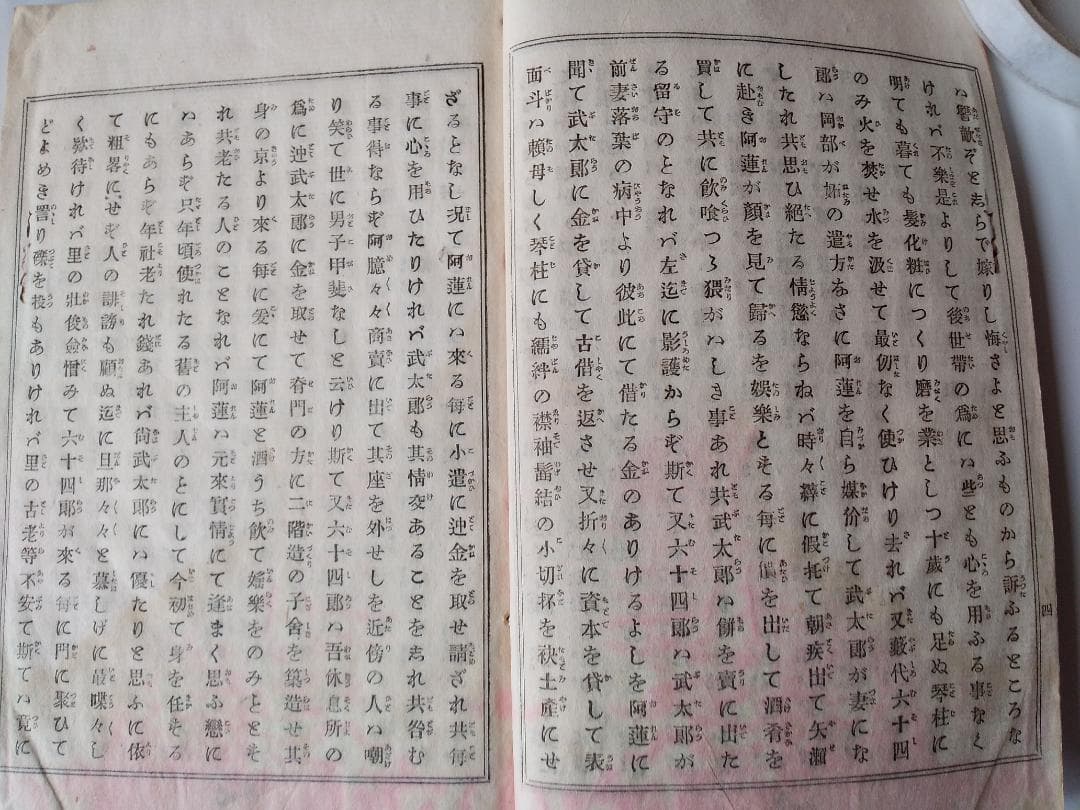 ハ讐敵ぞとゑらで嫁りし悔さよと思ふものから訴ふるところな
けれバ不樂是よりして後世帶の爲にハ些とも心を用ふる事なく
明ても暮ても髮化粧につくり磨を業としつ十歳にも足ぬ琴柱に
のみ火を焚せ水を汲せて最刧なく使ひけり去れバ又藪代六十四
郎ハ岡部が妬の遣方あさに阿蓮を自ら媒妁して武太郎が妻にな
したれ共思ひ絶たる情慾ならねバ時々辭に假托て朝疾出て矢瀬
に赴き阿蓮が顏を見て歸るを娯樂とそる毎に價を出して酒肴を
買して共に飮喰つゝ猥がハしき事あれ共武太郎ハ餅を賣に出た
る留守のとなれバ左迄に影護からぞ斯て又六十四郎ハ武太郎が
前妻落葉の病中より彼此にて借たる金のありけるよしを阿蓮に
聞て武太郎に金を貸して古借を返させ又折々に資本を貸して表
面斗ハ頼母しく琴柱にも繻絆の襟袖髷結の小切抔を袂土産にせ
四
ざるとなし況て阿蓮にハ來る毎に小遣に迚金を取せ請ざれ共毎
事に心を用ひたりけれバ武太郎も其情交あることをゑれ共咎む
る事得ならぞ阿臆々々商賣に出て其座を外せしを近傍の人ハ嘲
り笑て世に男子甲斐なしと云けり斯て又六十四郎ハ吾休息所の
爲に迚武太郎に金を取せて脊門の方に二階造の子舍を築造せ其
身の京より來る毎に爰にて阿蓮と酒うち飮て婬樂をのみとそそ
れ共老たる人のことなれバ阿蓮ハ元來實情にて逢まく思ふ戀に
ハあらぞ只年頃使れたる舊の主人のとにして今初て身を任そる
にもあらぞ年社老たれ錢あれバ尙武太郎にハ優たりと思ふに依
て粗畧にせぞ人の誹謗も顧ぬ迄に旦那々々と慕しげに最喋々し
く欵待けれバ里の壯俊僉憎みて六十四郎が來る毎に門に聚ひて
どよめき詈り礫を投もありけれバ里の古老等不安て斯てハ竟に